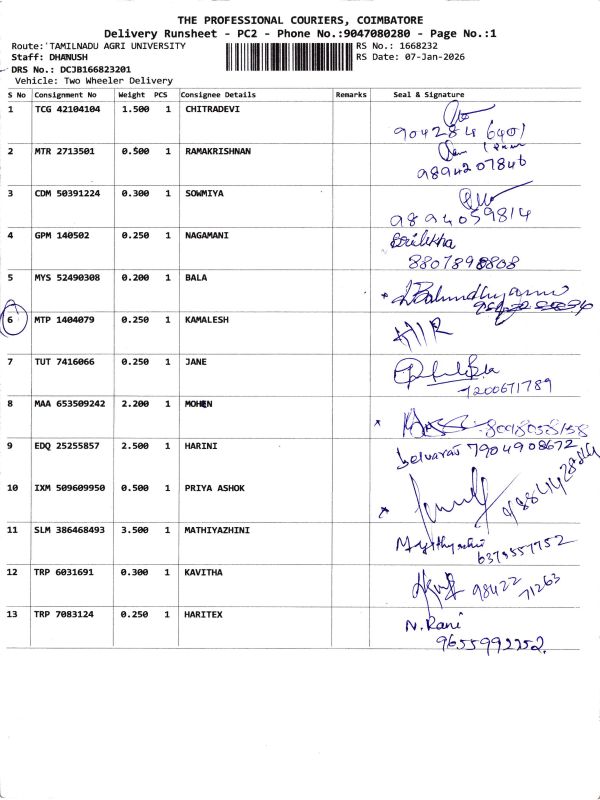 THE PROFESSIONAL COURIERS, COIMBATORE
Delivery Runsheet - PC2 - Phone No.:9047080280 - Page No.:1
Route: TAMILNADU AGRI UNIVERSITY
Staff: DHANUSH
DRS No.: DCJB166823201
Vehicle: Two Wheeler Delivery
RS No.: 1668232
RS Date: 07-Jan-2026
S No Consignment No Weight PCS Consignee Details Remarks Seal & Signature
1 TCG 42104104 1.500 1 CHITRADEVI
9042846401
2 MTR 2713501 0.500 1 RAMAKRISHNAN
9894207846
3 CDM 50391224 0.300 1 SOWMIYA
9894059814
4 GPM 140502 0.250 1 NAGAMANI
Srilekha
8807898808
5 MYS 52490308 0.200 1 BALA
6 MTP 1404079 0.250 1 KAMALESH
7 TUT 7416066 0.250 1 JANE
7200671789
8 MAA 653509242 2.200 1 MOHEN
9 EDQ 25255857 2.500 1 HARINI
Selvaraj 7904908672
10 IXM 509609950 0.500 1 PRIYA ASHOK
11 SLM 386468493 3.500 1 MATHIYAZHINI
6379557752
12 TRP 6031691 0.300 1 KAVITHA
98422 71263
13 TRP 7083124 0.250 1 HARITEX
N. Rani
9655992252.